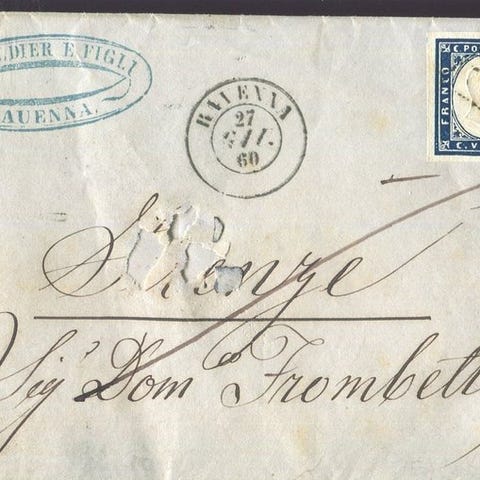 LDIER E FIGLI
RAVENNA.
RAVENNA
27
GIU.
60
C. PO
FRANCO
C. V
Firenze
Sig' Dom.co Frombett